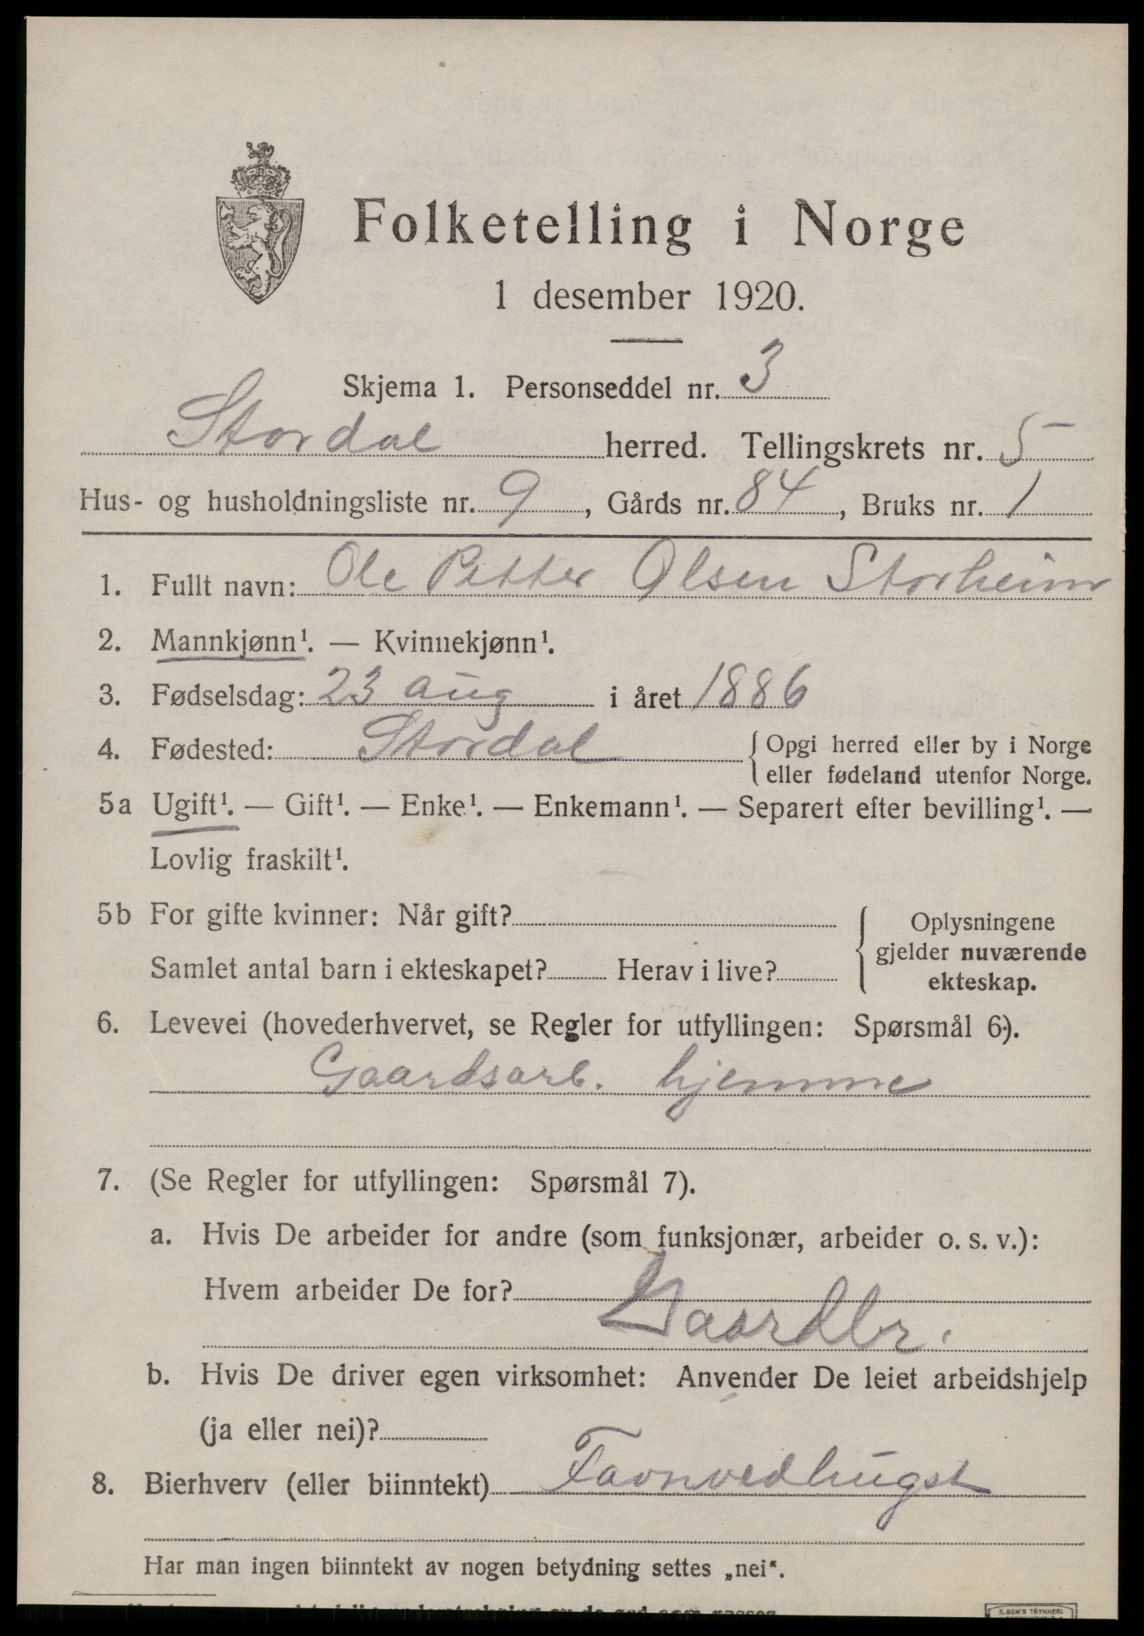 Folketelling i Norge
1 desember 1920.
Skjema 1. Personseddel nr. 3
Stordal herred. Tellingskrets nr. 5
Hus- og husholdningsliste nr. 9, Gårds nr. 84, Bruks nr. 1
1. Fullt navn: Ole Petter Olsen Storheim
2. Mannkjønn¹. — Kvinnekjønn¹.
3. Fødselsdag: 23 aug i året 1886
4. Fødested: Stordal {Opgi herred eller by i Norge
eller fødeland utenfor Norge.
5a Ugift¹. — Gift¹. — Enke¹. — Enkemann¹. — Separert efter bevilling¹. —
Lovlig fraskilt¹.
5b For gifte kvinner: Når gift?
Samlet antal barn i ekteskapet? Herav i live?
{Oplysningene
gjelder nuværende
ekteskap.
6. Levevei (hovederhvervet, se Regler for utfyllingen: Spørsmål 6).
Gaardsarb. hjemme
7. (Se Regler for utfyllingen: Spørsmål 7).
a. Hvis De arbeider for andre (som funksjonær, arbeider o. s. v.):
Hvem arbeider De for?
Gaardbr.
b. Hvis De driver egen virksomhet: Anvender De leiet arbeidshjelp
(ja eller nei)?
8. Bierhverv (eller biinntekt) Favnvedhugst
Har man ingen biinntekt av nogen betydning settes „nei".